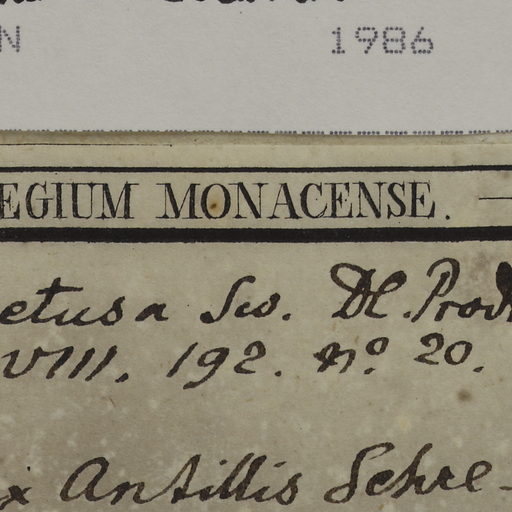 N 1986
EGIUM MONACENSE.
etusa Sw. DC. Prod
VIII. 192. nº 20.
x Antillis Schre-